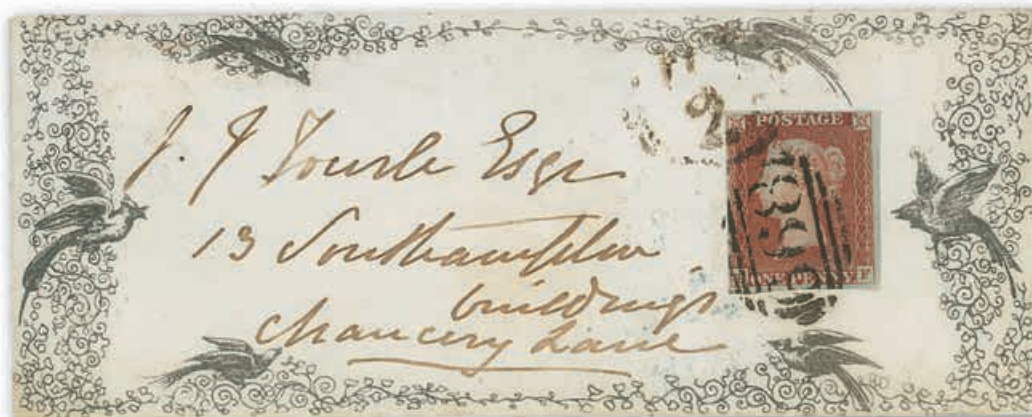 J. J. Tourle Esqr
13 Southampton
buildings
Chancery Lane
POSTAGE
ONE PENNY